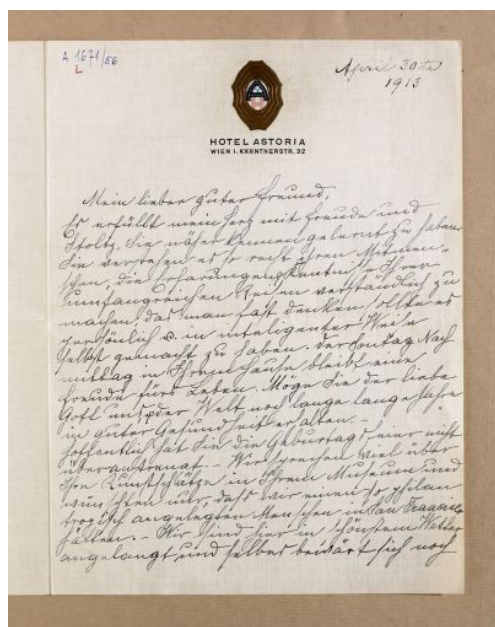 A 1671/56
L
April 30te
1913
HOTEL ASTORIA
WIEN I. KÄRNTNERSTR. 32
Mein lieber guter Freund,
Es erfüllt mein Herz mit Freude und
Stoltz, Sie näher kennen gelernt zu haben
Sie verstehen es so recht Ihren Mitmen-
schen, die Erfarungen Kentnisse Ihrer
umfangreichen Reisen verständlich zu
machen, das man fast denken sollte es
persönlich u. in inteligenter Weise
selbst gemacht zu haben. Der Sontag Nach
mittag in Ihrem Hause bleibt eine
Freude fürs Leben. Möge Sie der liebe
Gott uns der Welt noch lange lange Jahre
in guter Gesundheit erhalten. -
Hoffentlich hat Sie die Geburtagsfeier nicht
überanstrengt. - Wir sprechen viel über
Ihre Kunstschätze in Ihrem Museum und
wünschten nur, dass wir einen so philan
tropisch angelegten Menschen in San Francisco
hätten. - Wir sind hier in schönstem Wetter
angelangt und selbes bewärt sich noch